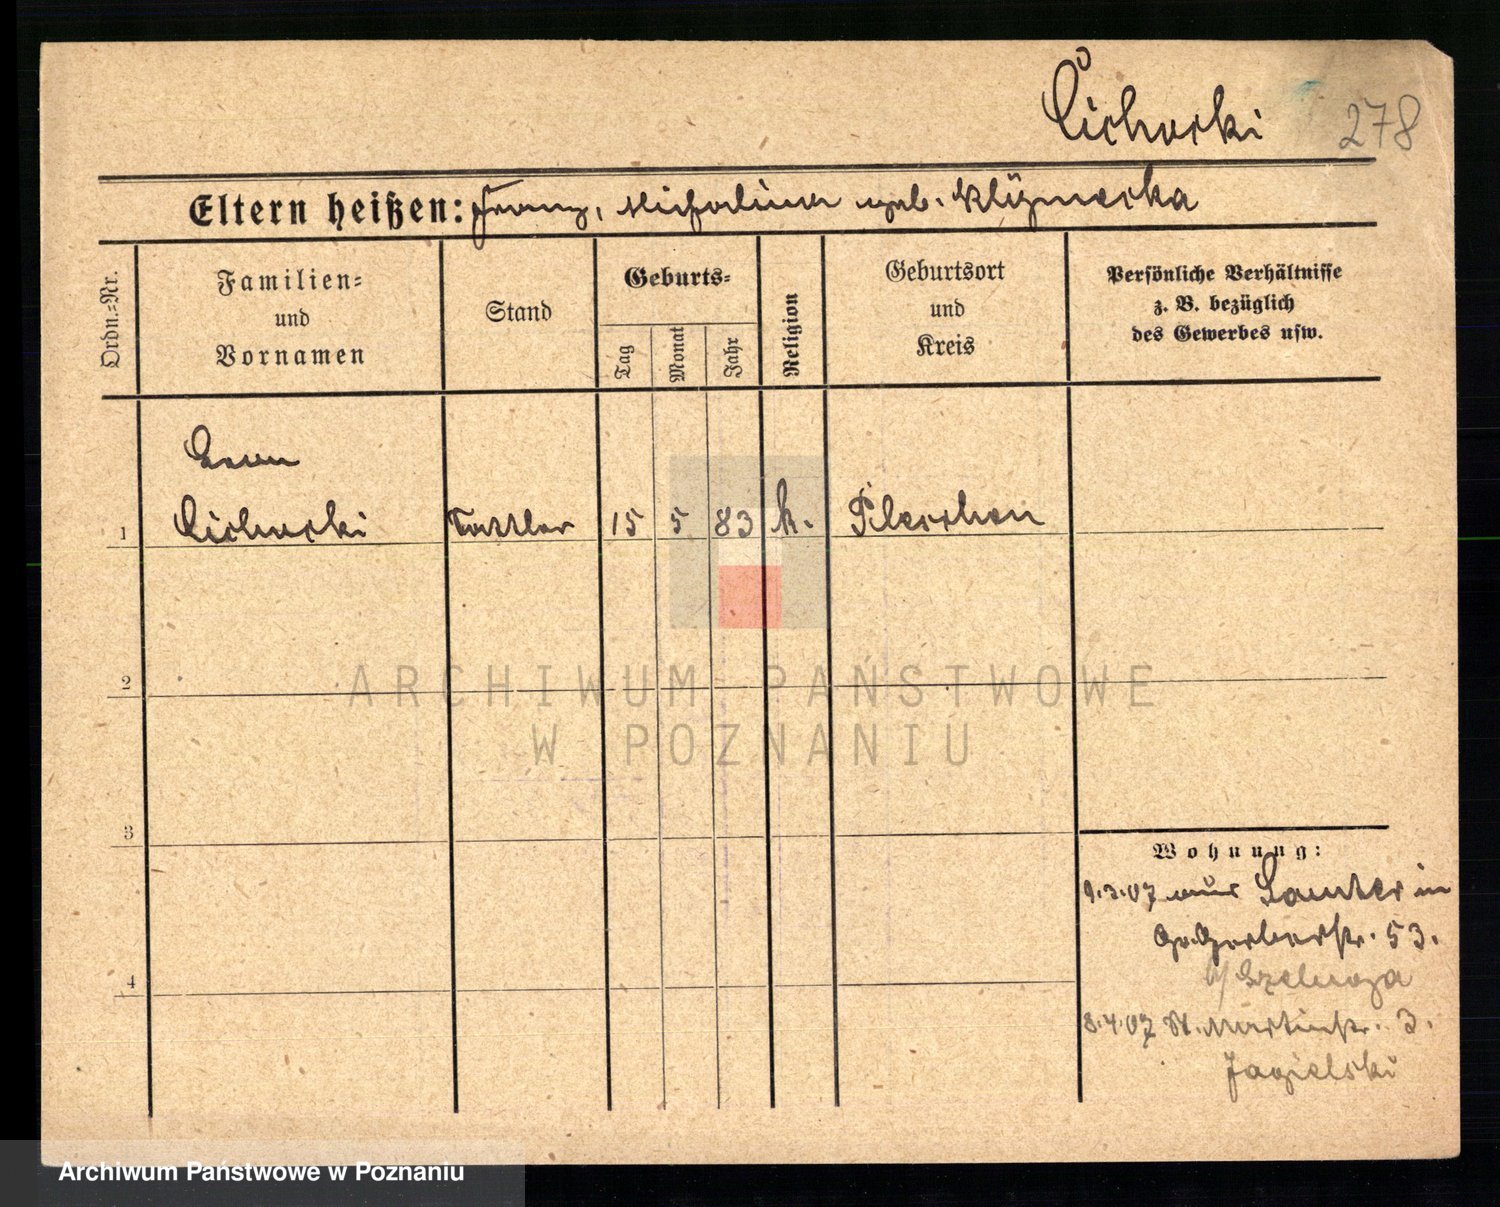 Cichocki 278
Eltern heißen: Franz, Michalina geb.
Ordn.-Nr.
Familien-
und
Vornamen
Stand
Geburts-
Tag
Monat
Jahr
Religion
Geburtsort
und
Kreis
Persönliche Verhältnisse
z. B. bezüglich
des Gewerbes usw.
1
Cichocki Sattler 15 5 83 k. Pleschen
2
3
4
Wohnung:
9.3.07 aus Samter in
Gr. Gerberstr. 53.
8.4.07 St. Martinstr. 3.
Jagielski
ARCHIWUM PAŃSTWOWE
W POZNANIU
Archiwum Państwowe w Poznaniu